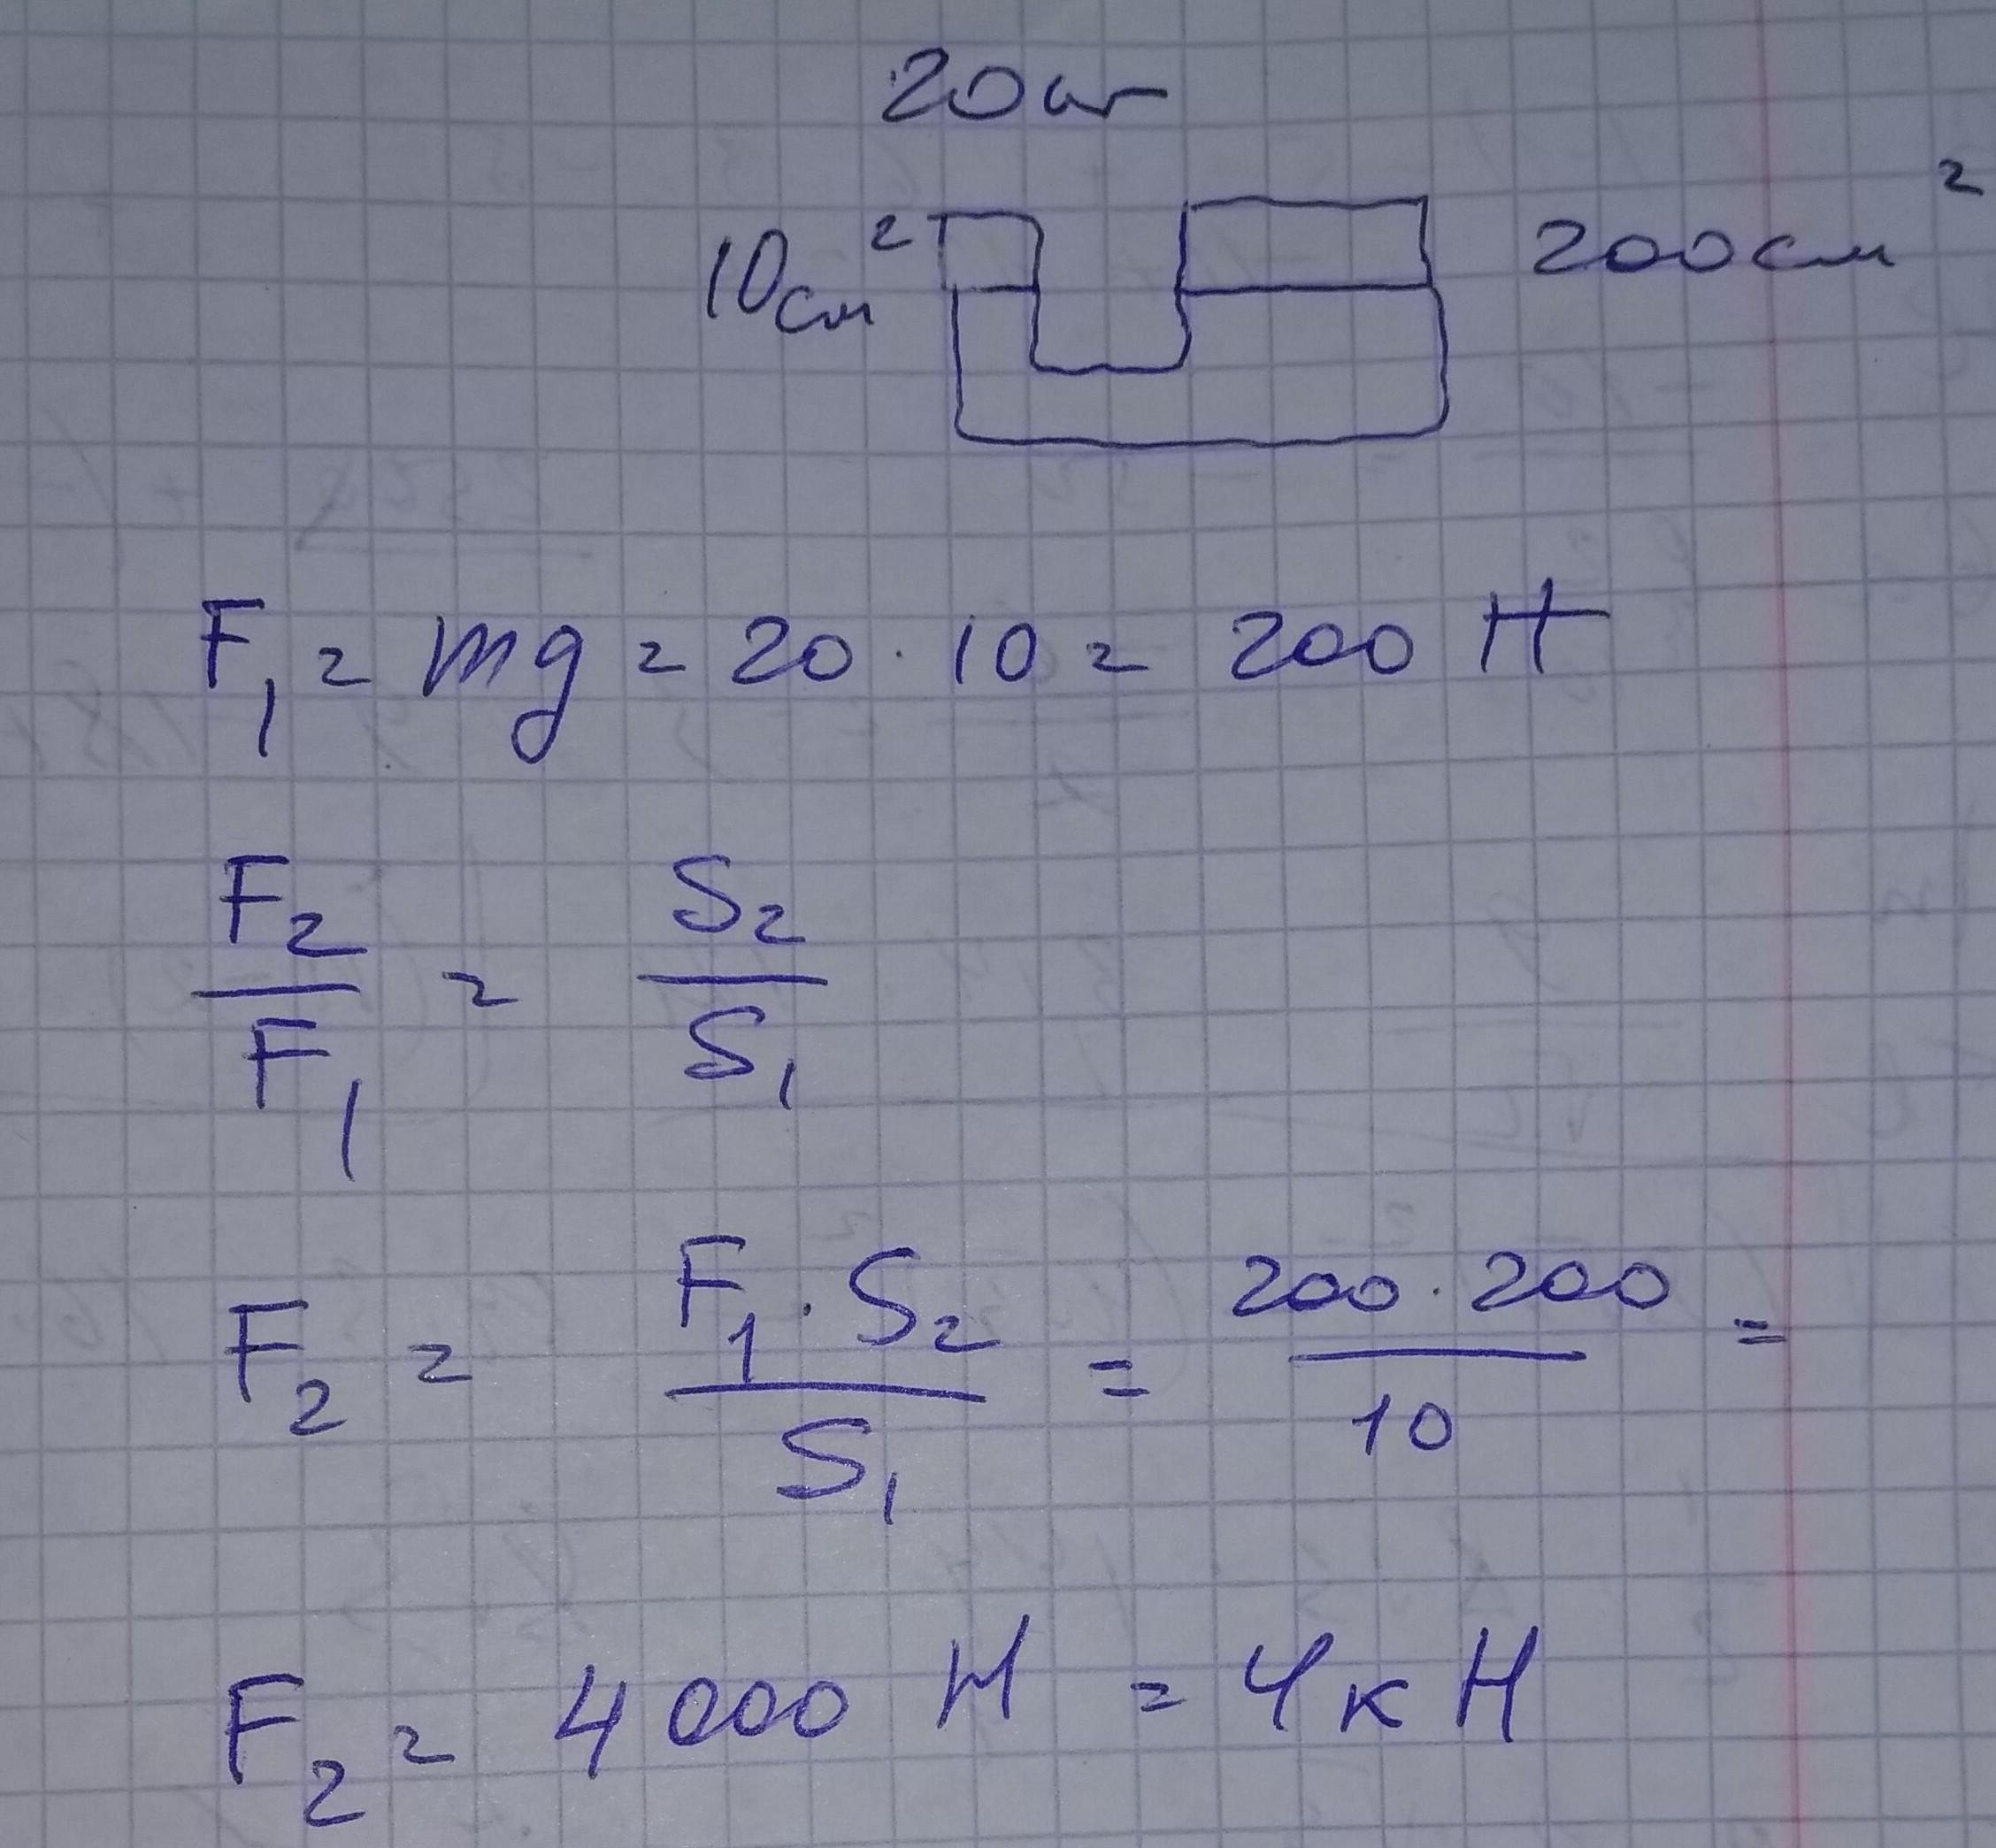 20кг
10см² 200см²
F₁ = mg = 20 · 10 = 200 Н
F₂/F₁ = S₂/S₁
F₂ = F₁ · S₂/S₁ = 200 · 200/10 =
F₂ = 4000 Н = 4кН